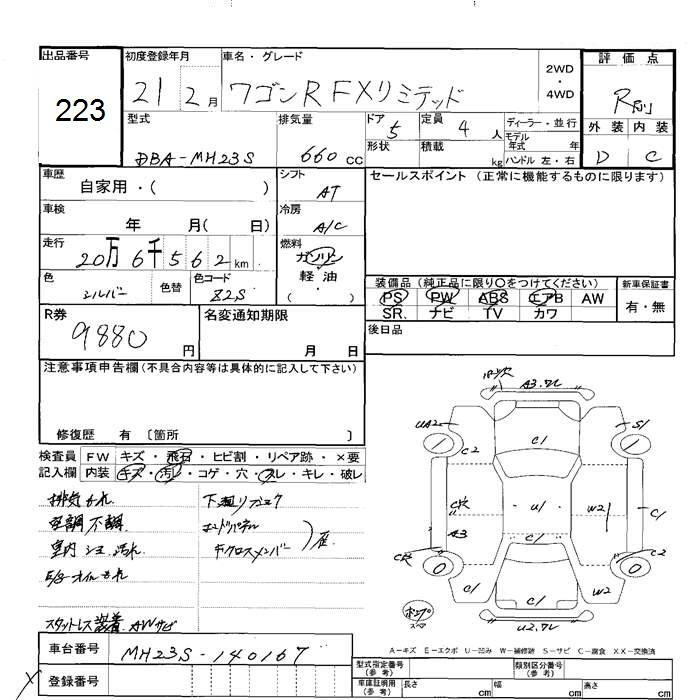 出品番号
223
初度登録年月
21 2月
車名・グレード
ワゴンR FXリミテッド
2WD
・
4WD
評価点
R
外装 内装
D C
型式
DBA-MH23S
排気量
660 cc
ドア
5
形状
定員
4 人
積載
kg
ディーラー・並行
モデル
年式 年
ハンドル 左・右
車歴
自家用・( )
シフト
AT
セールスポイント (正常に機能するものに限ります)
車検
年 月( 日)
冷房
A/C
走行
20万6千562km
燃料
ガソリン
軽油
( )
色
シルバー
色替
色コード
Z2S
装備品(純正品に限り〇をつけてください)
PS PW ABS エアB AW
SR ナビ TV カワ
新車保証書
有・無
R券
9880 円
名変通知期限
月 日
後日品
注意事項申告欄(不具合内容等は具体的に記入して下さい)
修復歴 有 〔箇所 〕
検査員
記入欄
FW キズ・飛石・ヒビ割・リペア跡・×要
内装 キズ・汚レ・コゲ・穴・スレ・キレ・破レ
排気もれ
空調不調
室内 汚れ
E/gオイルもれ
スタットレス装着 AWサビ
下廻り
クロスメンバー
A3.ワレ
UA2
C2
C1
S1
U1
W2
C1
A3
C1
C2
C1
C1
W2
U2.ワレ
A-キズ E-エクボ U-凹み W-補修跡 S-サビ C-腐食 XX-交換済
車台番号
MH23S-140167
登録番号
型式指定番号
(参考)
類別区分番号
(参考)
車庫証明用
(参考)
長さ cm
幅 cm
高さ cm